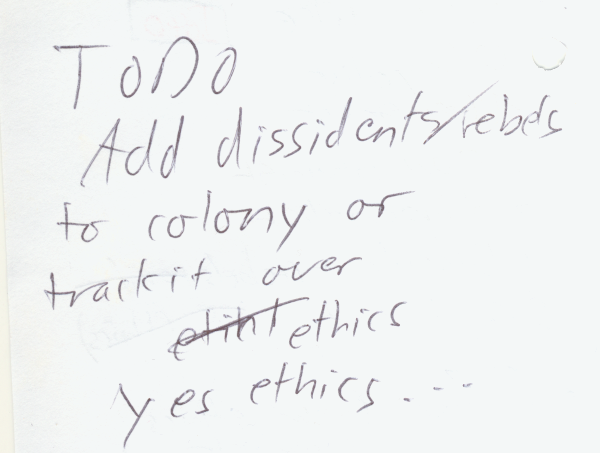 ToDo
Add dissidents/rebels
to colony or
track it over
ethics
yes ethics...